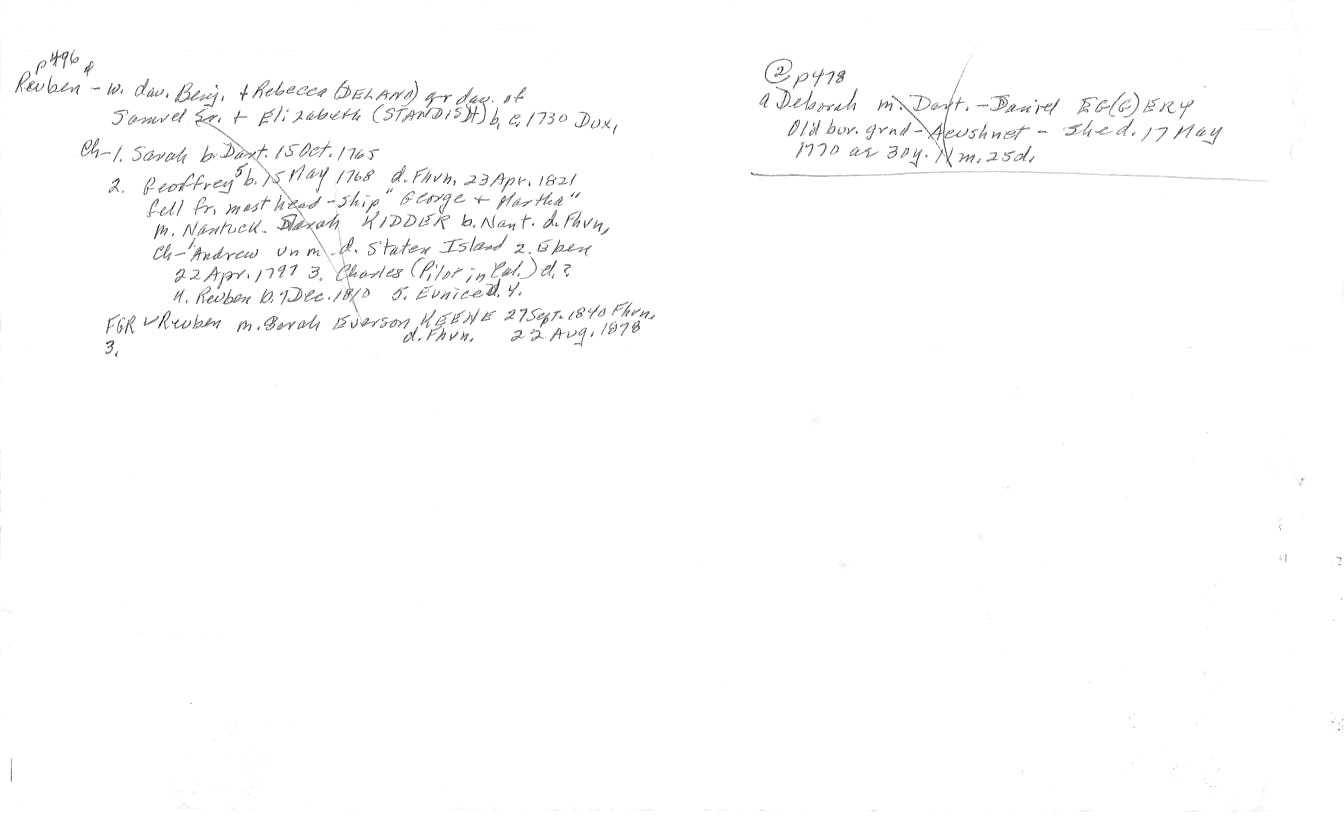 p496
Reuben - w. dau. Benj. + Rebecca (DELANO) gr dau. of
Samuel Sr. + Elizabeth (STANDISH) b. c. 1730 Dux.
Ch-1. Sarah b. Dart. 15 Oct. 1765
2. Geoffrey⁵ b. 15 May 1768 d. Fhvn. 23 Apr. 1821
fell fr. mast head - ship "George + Martha"
m. Nantuck. Sarah KIDDER b. Nant. d. Fhvn,
Ch-1 Andrew unm. d. Staten Island 2. Eben
22 Apr. 1797 3. Charles (Pilot in Cal.) d.?
4. Reuben b. 7 Dec. 1810 5. Eunice d. y.
FGR ✓Reuben m. Sarah Everson KEENE 27 Sept. 1840 Fhvn.
d. Fhvn. 22 Aug. 1878
3.
② p478
a Deborah m. Dart. - Daniel EG(G)ERY
Old bur. grnd - Acushnet - She d. 17 May
1770 ae 30y. 11m. 25d.